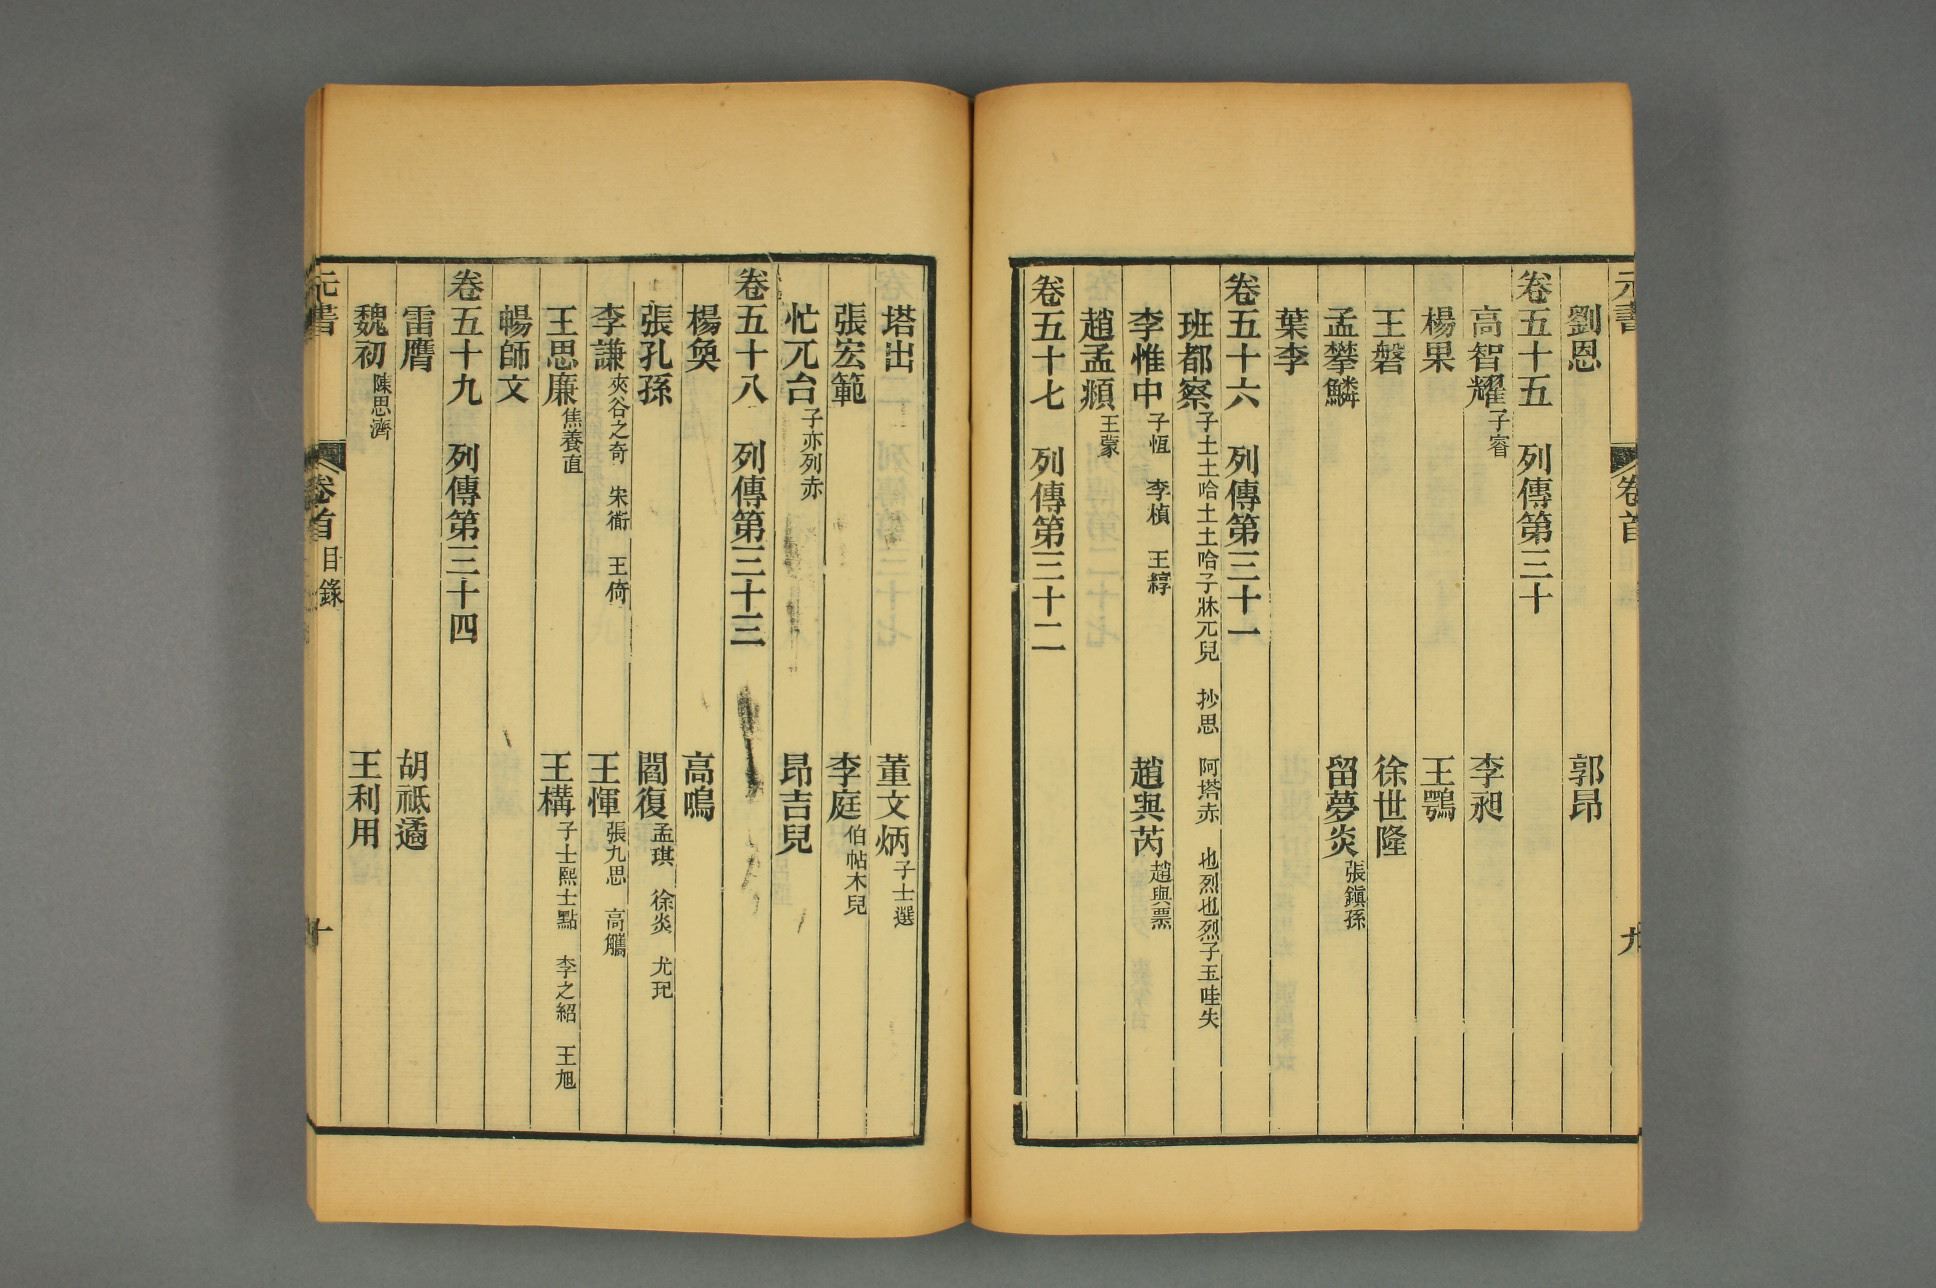 元書 卷首 九
劉恩 郭昂
卷五十五 列傳第三十
高智耀子睿 李昶
楊果 王鶚
王磐 徐世隆
孟攀鱗 留夢炎張鎭孫
葉李
卷五十六 列傳第三十一
班都察子土土哈土土哈子牀兀兒 抄思 阿塔赤 也烈也烈子玉哇失
李惟中子恆 李楨 王綧 趙與芮趙與票
趙孟頫王蒙
卷五十七 列傳第三十二
塔出 董文炳子士選
張宏範 李庭伯帖木兒
忙兀台子亦列赤 昂吉兒
卷五十八 列傳第三十三
楊奐 高鳴
張孔孫 閻復孟琪 徐炎 尤玘
李謙夾谷之奇 朱衟 王倚 王惲張九思 高觿
王思廉焦養直 王構子士熙士點 李之紹 王旭
暢師文
卷五十九 列傳第三十四
雷膺 胡祗遹
魏初陳思濟 王利用
元書 卷首目錄 十